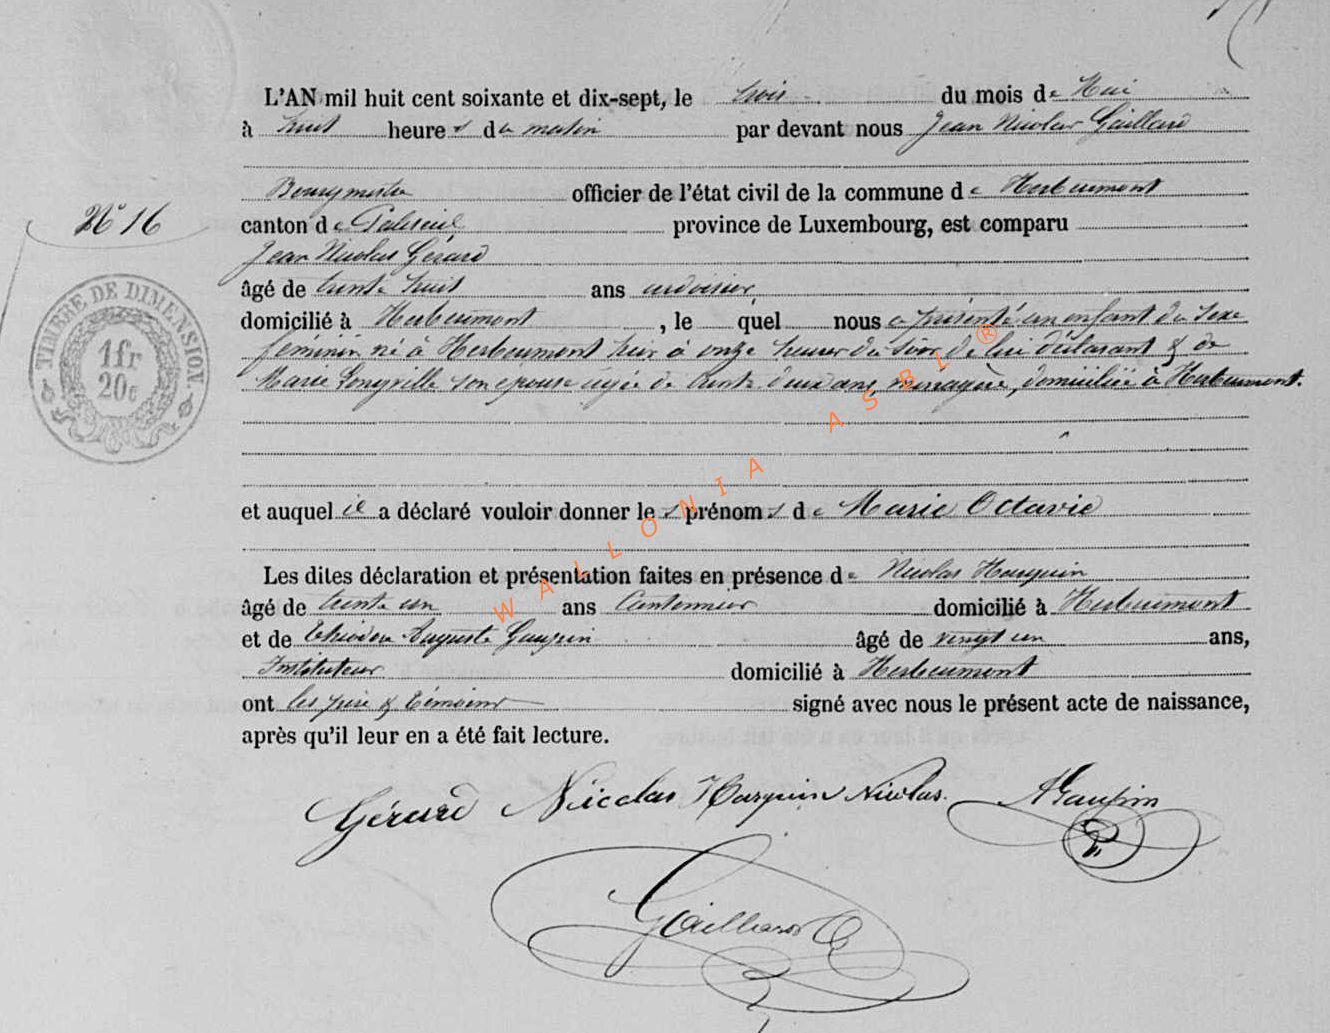 L'AN mil huit cent soixante et dix-sept, le trois du mois de Mai
à huit heures du matin par devant nous Jean Nicolas Gaillard
Bourgmestre officier de l'état civil de la commune de Herbeumont
N° 16
canton de Paliseul province de Luxembourg, est comparu
Jean Nicolas Gérard
âgé de trente huit ans ardoisier
domicilié à Herbeumont, le quel nous a présenté un enfant du sexe
féminin né à Herbeumont hier à onze heures du soir de lui déclarant & de
Marie Longville son épouse agée de trente deux ans, menagère, domiciliée à Herbeumont.
TIMBRE DE DIMENSION.
1fr
20c
et auquel il a déclaré vouloir donner les prénoms de Marie Octavie
Les dites déclaration et présentation faites en présence de Nicolas
âgé de trente un ans Cantonnier domicilié à Herbeumont
et de Auguste Gaupin âgé de vingt un ans,
Instituteur domicilié à Herbeumont
ont les père & témoins signé avec nous le présent acte de naissance,
après qu'il leur en a été fait lecture.
Gérard Nicolas Nicolas. AGaupin
Gaillard
WALLONIA ASBL ®